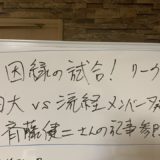 因縁の試合！リーグ
大 vs 流経メンバー
斉藤健二さんの記事参